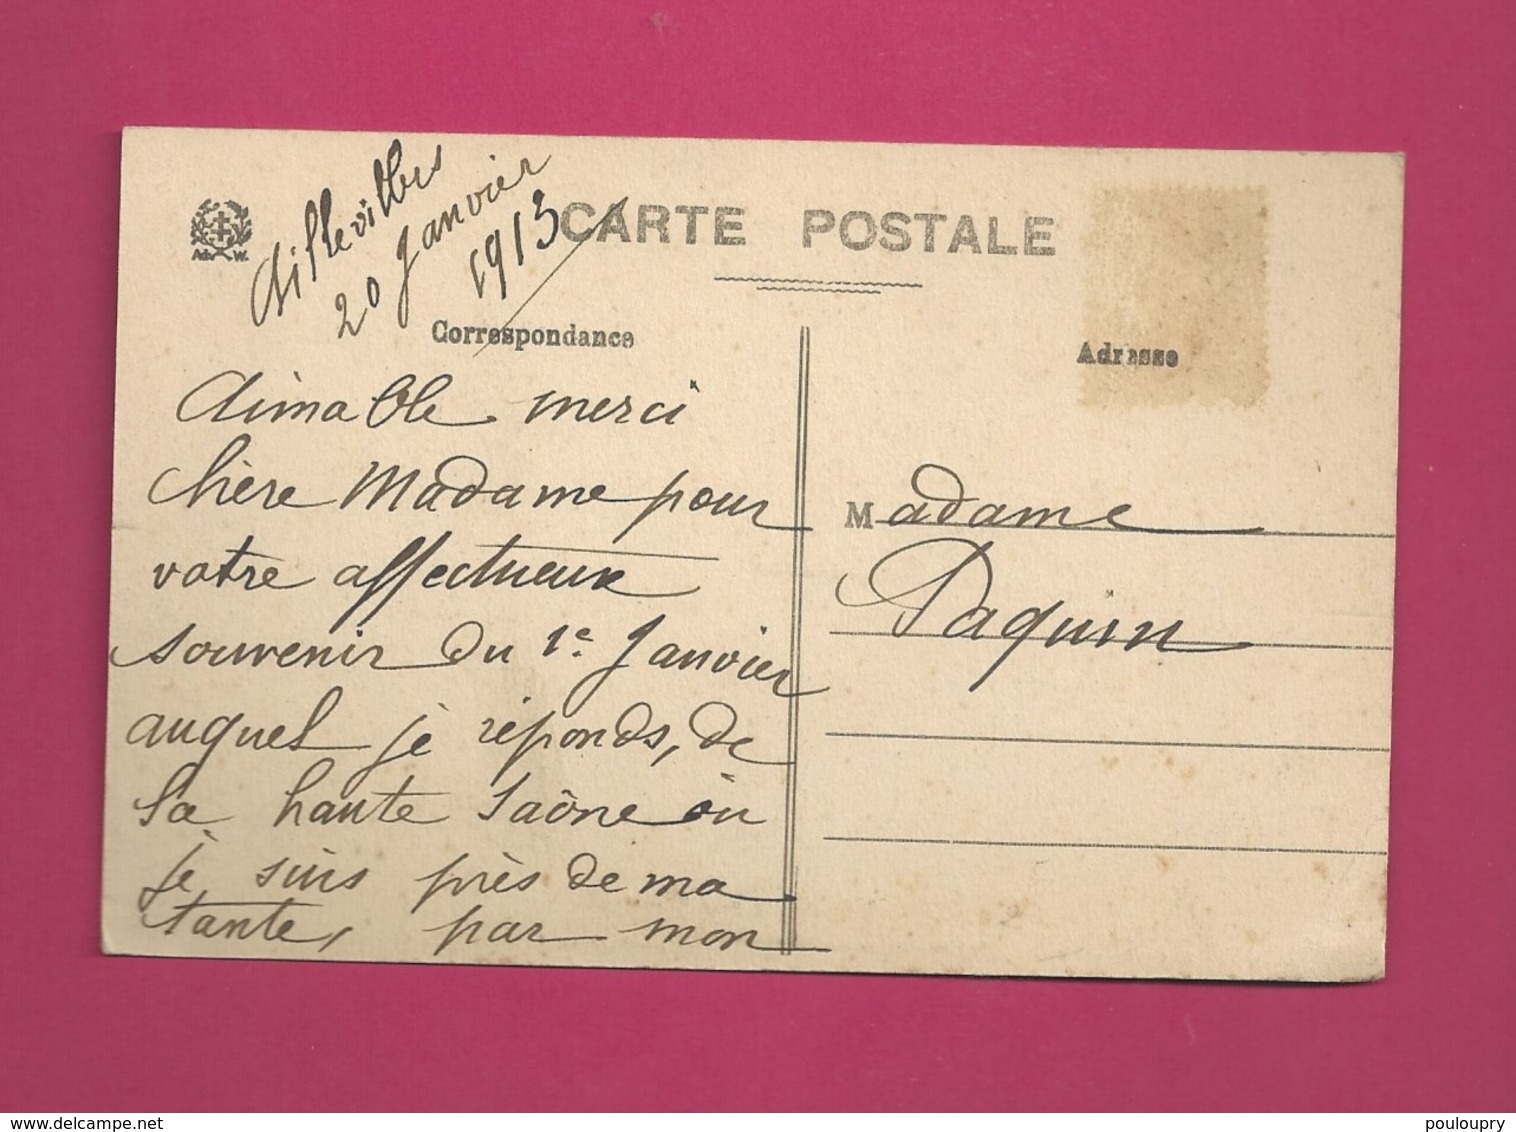 Aillevillers
20 Janvier
1913
CARTE POSTALE
Ad. W.
Correspondance
Adresse
Aimable merci
chère Madame pour
votre affectueux
souvenir du 1e Janvier
auquel je réponds, de
la haute Saône où
je suis près de ma
tante, par mon
Madame
Paquin
delcampe.net
pouloupry